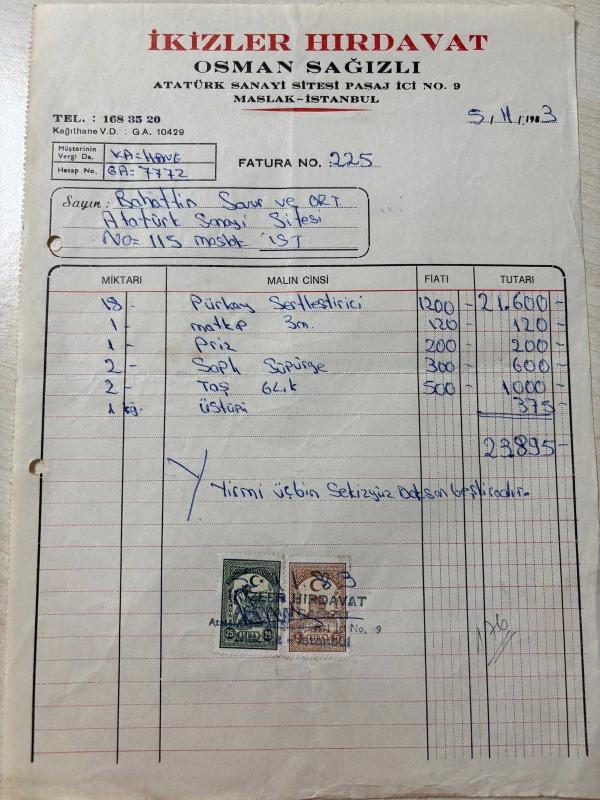 İKİZLER HIRDAVAT
OSMAN SAĞIZLI
ATATÜRK SANAYİ SİTESİ PASAJ İCİ NO. 9
MASLAK-İSTANBUL
TEL. : 168 35 20
Kağıthane V.D. : G A. 10429
5/11/1983
Müşterinin Vergi Da. KA=HANE
Hesap No. GA=7772
FATURA NO. : 225
Sayın : Bahattin Savur ve ORT.
Atatürk Sanayi Sitesi
No= 115 maslak İST
MİKTARI MALIN CİNSİ FİATI TUTARI
18 - Pürkay Sertleştirici 1200 - 21.600 -
1 - matkap 3m. 120 - 120 -
1 - Priz 200 - 200 -
2 - Saplı Süpürge 300 - 600 -
2 - Taş 64lk 500 - 1000 -
1 kg. üstüpü 375 -
23.895 -
Yirmi üçbin Sekizyüz Doksan beşliradır.
İKİZLER HIRDAVAT
No. 9
25 LİRA 25